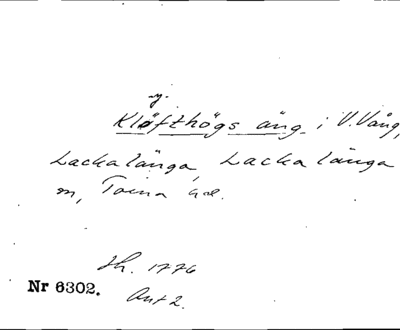 y.
Klöfthögs äng i V. Vång,
Lackalänga, Lackalänga
sn, Torna hd.
Sk. 1776
Ant 2.
Nr 6302.